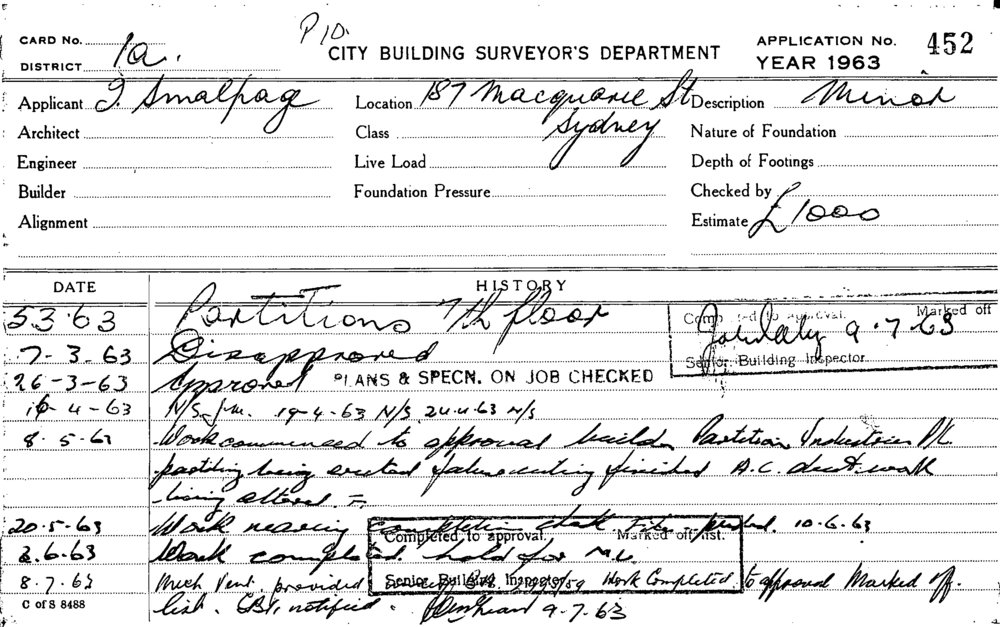 P10.
CARD No. 1a. CITY BUILDING SURVEYOR'S DEPARTMENT APPLICATION No. 452
DISTRICT YEAR 1963
Applicant J. Smalpag Location 187 Macquarie St Description Minor
Architect Class Sydney Nature of Foundation
Engineer Live Load Depth of Footings
Builder Foundation Pressure Checked by
Alignment Estimate £1000
DATE HISTORY
5 3 63 Partitions 7th floor Completed to approval. Marked off
9.7.63
7-3-63 Disapproved Senior Building Inspector
26-3-63 Approved PLANS & SPECN. ON JOB CHECKED
16-4-63 N/S 19-4-63 N/S 24.4.63 N/S
8.5.63 Work commenced to approval Partition Industries
being erected finished A.C. duct work
being altered
20.5.63 Work nearing completion 10.6.63
Completed to approval. Marked off list.
2.6.63 Work completed hold for
Senior Building Inspector
8.7.63 Mech Vent. provided Work Completed to approval Marked off
C of S 8488 list. notified. 9.7.63